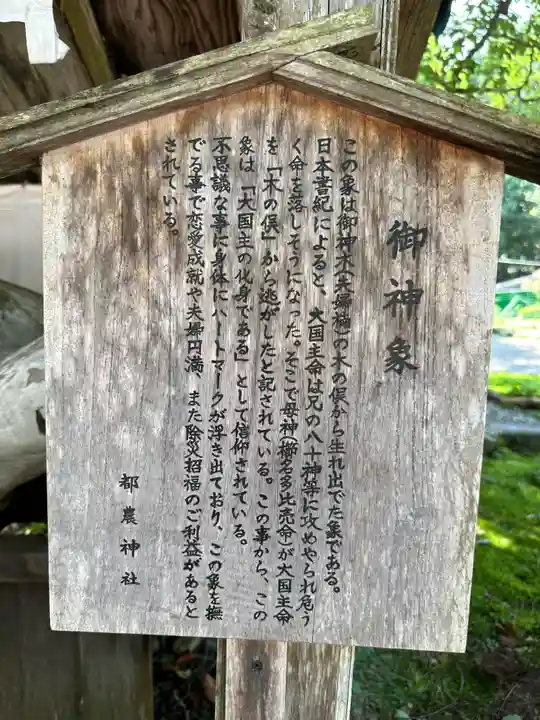 御神象
この象は御神木(夫婦楠)の木の俣から生れ出でた象である。
日本書紀によると、大国主命は兄の八十神等に攻めやられ危う
く命を落しそうになった。そこで母神(櫛名多比売命)が大国主命
を「木の俣」から逃がしたと記されている。この事から、この
象は「大国主の化身である」として信仰されている。
不思議な事に身体にハートマークが浮き出ており、この象を撫
でる事で恋愛成就や夫婦円満、また除災招福のご利益があると
されている。
都農神社